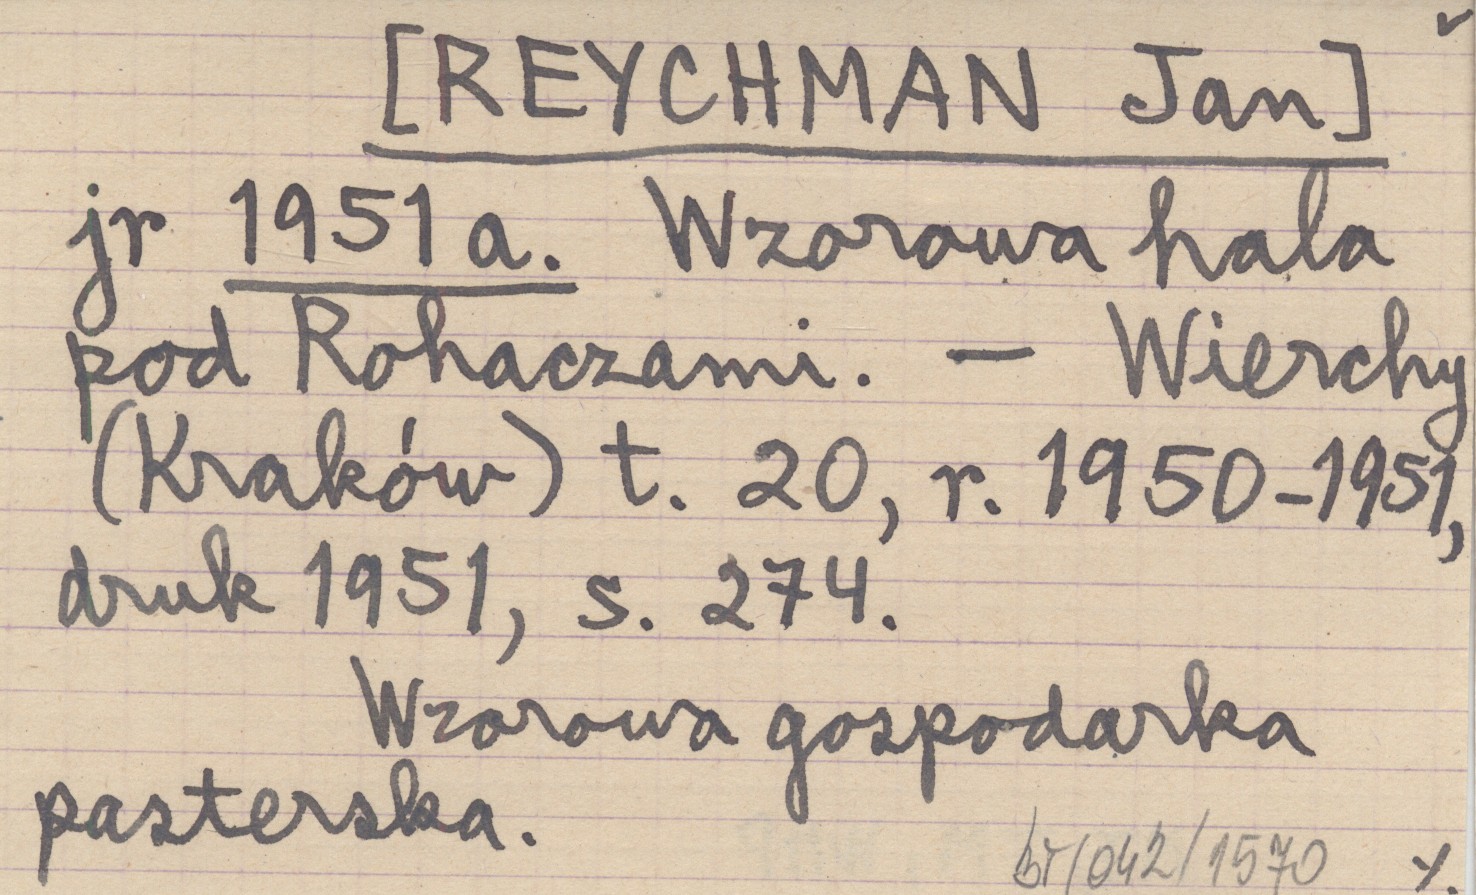 [REYCHMAN Jan]
jr 1951a. Wzorowa hala
pod Rohaczami. — Wierchy
(Kraków) t. 20, r. 1950-1951,
druk 1951, s. 274.
Wzorowa gospodarka
pasterska.
bt/042/1570 %.